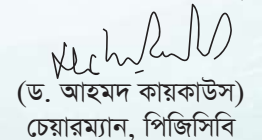 (ড. আহমদ কায়কাউস)
চেয়ারম্যান, পিজিসিবি